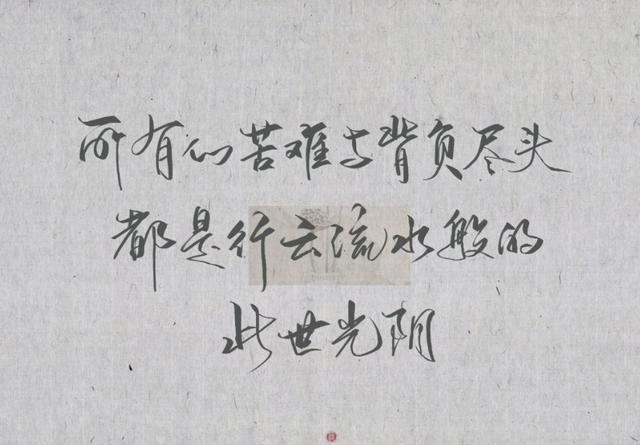 所有的苦难与背负尽头
都是行云流水般的
此世光阴